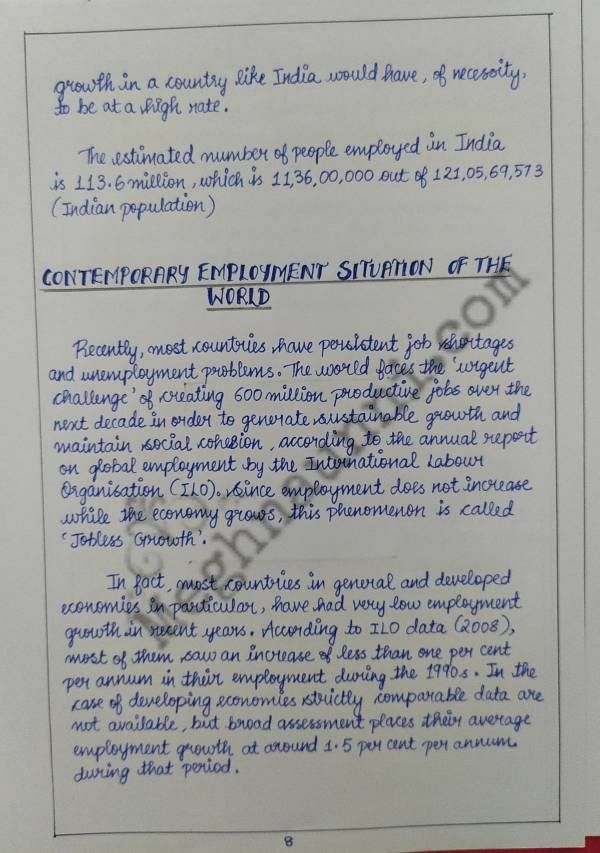 growth in a country like India would have, of necessity,
to be at a high rate.
The estimated number of people employed in India
is 113.6 million, which is 11,36,00,000 out of 121,05,69,573
(Indian population)
CONTEMPORARY EMPLOYMENT SITUATION OF THE
WORLD
Recently, most countries have persistent job shortages
and unemployment problems. The world faces the 'urgent
challenge' of creating 600 million productive jobs over the
next decade in order to generate sustainable growth and
maintain social cohesion, according to the annual report
on global employment by the International Labour
Organisation (ILO). Since employment does not increase
while the economy grows, this phenomenon is called
'Jobless Growth'.
In fact, most countries in general and developed
economies in particular, have had very low employment
growth in recent years. According to ILO data (2008),
most of them saw an increase of less than one per cent
per annum in their employment during the 1990s. In the
case of developing economies strictly comparable data are
not available, but broad assessment places their average
employment growth at around 1.5 per cent per annum
during that period.
8